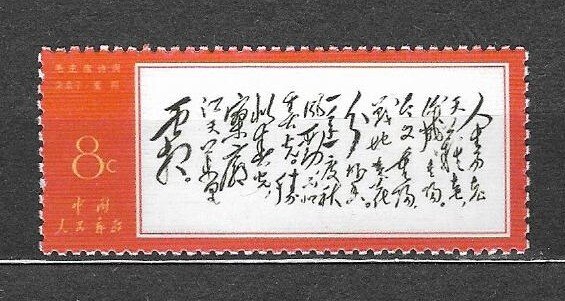 毛主席诗词
采桑子 重阳
8c
中国
人民邮政
人生易老
天难老
岁岁重阳
今又重阳
战地黄花
分外香
一年一度秋
风劲不似
春光胜
似春光
寥廓
江天万里
霜